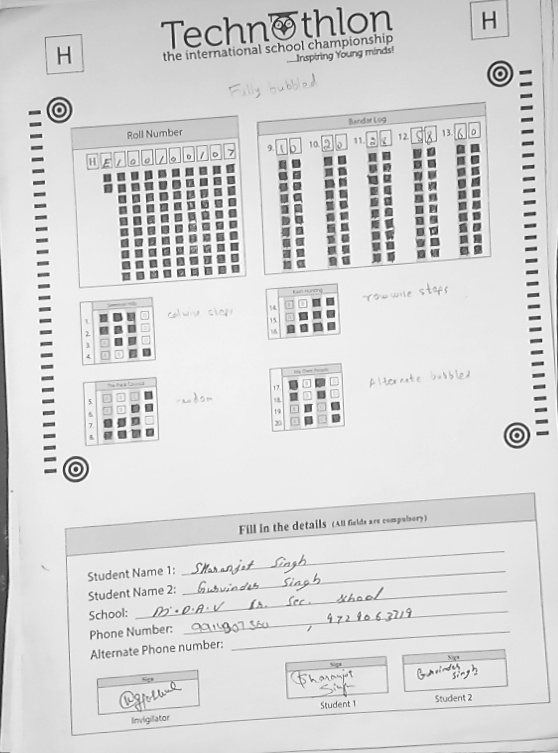 H
Technothlon
the international school championship
....Inspiring Young minds!
H
Fully bubbled
Roll Number
H E 1 0 0 1 0 0 0 1 0 7
Bandar Log
9. 10 10. 20 11. 28 12. 58 13. 60
1.
2.
3.
4.
colwise steps
14.
15.
16.
rowwise steps
5.
6.
7.
8.
random
17.
18.
19.
20.
Alternate bubbled
Fill in the details (All fields are compulsory)
Student Name 1: Sharanjot Singh
Student Name 2: Gurvinder Singh
School: D.A.V Sr. Sec. School
Phone Number:
Alternate Phone number:
Sign
Invigilator
Sign
Sharanjot
Singh
Student 1
Sign
Gurvinder
Singh
Student 2